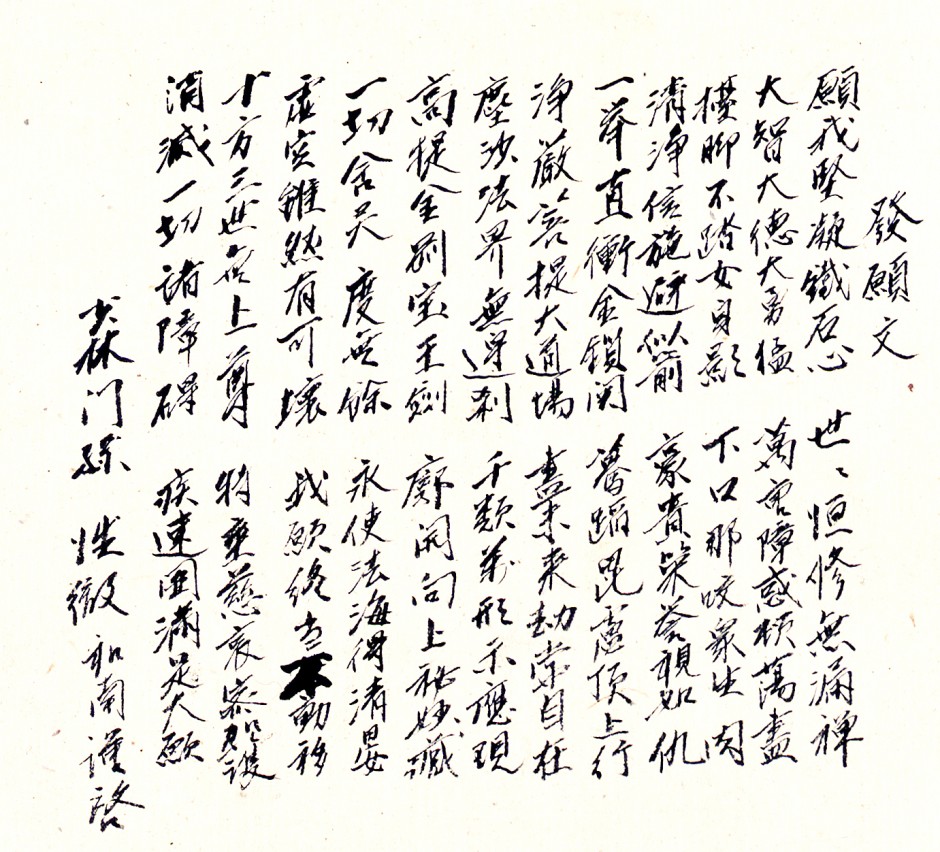 發願文
願我堅凝鐵石心 世〻恒修無漏禪
大智大德大勇猛 萬重障惑頓蕩盡
擡脚不踏女身影 下口那咬衆生肉
清淨信施避似箭 豪貴榮譽視如仇
一擧直衝金鎖関 驀蹈毘盧頂上行
淨嚴菩提大道場 盡未來劫常自在
塵沙法界無邊刹 千類萬形示應現
高提金剛宝王劍 廓開向上秘妙藏
一切含灵度無餘 永使法海得清晏
虛空雖然有可壞 我願終当不動移
十方三世無上尊 特垂慈哀密加護
消滅一切諸障碍 疾速圓滿足大願
少林門孫 性徹和南謹啓